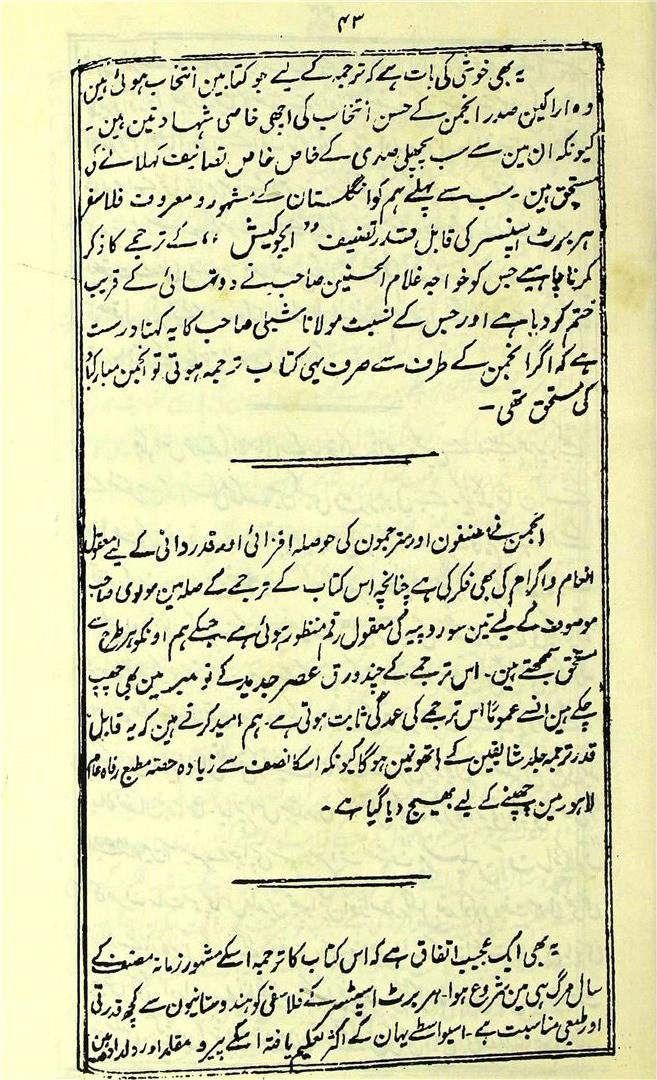 ۴۳
یہ بھی خوشی کی بات ہے کہ ترجمہ کے لیے جو کتابین انتخاب ہوئی ہین
وہ اراکین صدر انجمن کے حسن انتخاب کی اچھی خاصی شہادتین ہین ۔
کیونکہ ان مین سے سب پچھلی صدی کے خاص خاص تصانیف کہلانے کی
مستحق ہین ۔ سب سے پہلے ہم کو انگلستان کے مشہور و معروف فلاسفر
ہربرٹ اسپنسر کی قابل قدر تصنیف ” ایجوکیش “ کے ترجمے کا ذکر
کرنا چاہیے جس کو خواجہ غلام الحسنین صاحب نے دو تہائی کے قریب
ختم کر دیا ہے اور جس کے نسبت مولانا شبلی صاحب کا یہ کہنا درست
ہے کہ اگر انجمن کے طرف سے صرف یہی کتاب ترجمہ ہوتی تو انجمن مبارکباد
کی مستحق تھی ۔
انجمن نے مصنفون اور مترجمون کی حوصلہ افزائی اور قدردانی کے لیے معقول
انعام واکرام کی بھی فکر کی ہے چنانچہ اس کتاب کے ترجمے کے صلہ مین مولوی صاحب
موصوف کے لیے تین سو روپیہ کی معقول رقم منظور ہوئی ہے ۔ جسکے ہم اونکو ہر طرح سے
مستحق سمجھتے ہین ۔ اس ترجمے کے چند ورق عصر جدید کے نومبر مین بھی چھپ
چکے ہین انسے عموماً اس ترجمے کی عمدگی ثابت ہوتی ہے ۔ ہم امید کرتے ہین کہ یہ قابل
قدر ترجمہ جلد شایقین کے ہاتھونمین ہوگا کیونکہ اسکا نصف سے زیادہ حصّہ مطبع رفاہ عام
لاہور مین چھپنے کے لیے بھیج دیا گیا ہے ۔
یہ بھی ایک عجیب اتفاق ہے کہ اس کتاب کا ترجمہ اسکے مشہور زمانہ مصنف کے
سال مرگ ہی مین شروع ہوا ۔ ہربرٹ اسپنسر کے فلاسفی کو ہندوستانیون سے کچھ قدرتی
اور طبیعی مناسبت ہے ۔ اسیواسطے یہان کے اکثر تعلیم یافتہ اسکے پیرو مقلد اور دلدادہ ہین